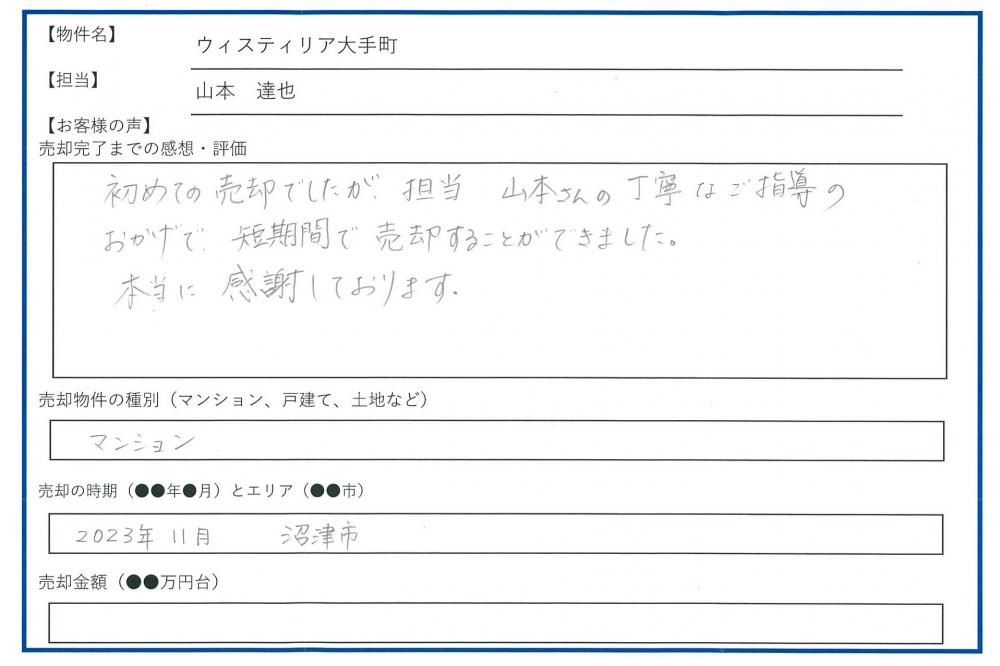 【物件名】
ウィスティリア大手町
【担当】
山本　達也
【お客様の声】
売却完了までの感想・評価
初めての売却でしたが、担当　山本さんの丁寧なご指導の
おかげで、短期間で売却することができました。
本当に感謝しております。
売却物件の種別（マンション、戸建て、土地など）
マンション
売却の時期（●●年●月）とエリア（●●市）
2023年 11月　　沼津市
売却金額（●●万円台）